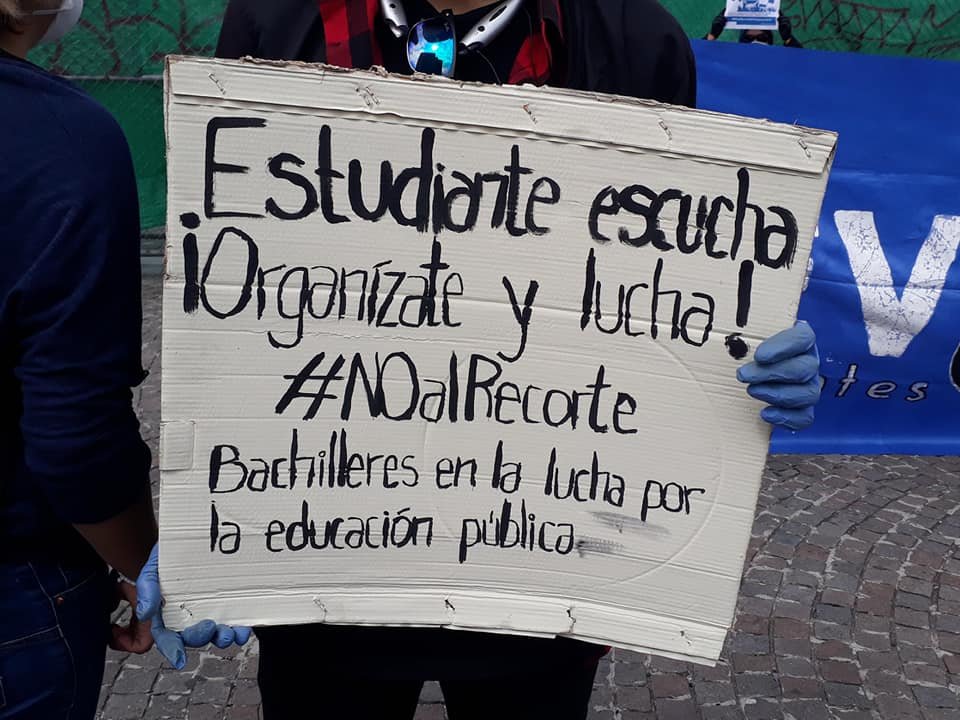 Estudiante escucha
¡Organízate y lucha!
#NOalRecorte
Bachilleres en la lucha por
la educación pública